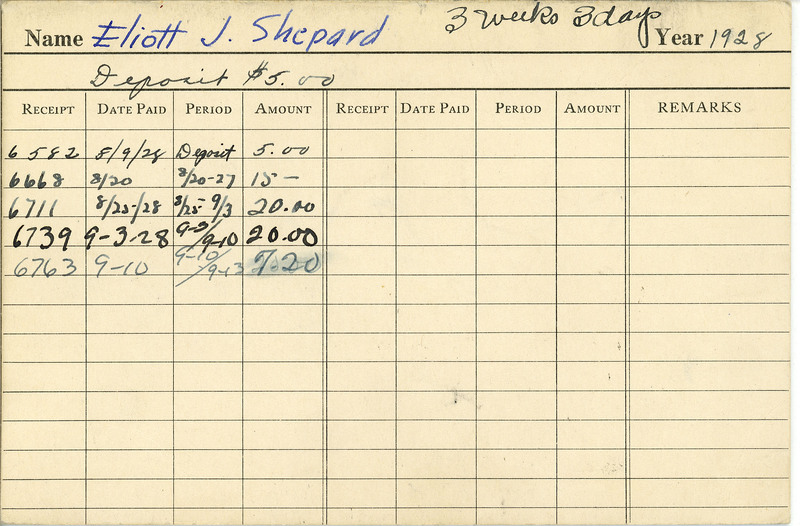 Name Eliott J. Shepard 3 weeks 3 days Year 1928
Deposit $5.00
RECEIPT DATE PAID PERIOD AMOUNT RECEIPT DATE PAID PERIOD AMOUNT REMARKS
6582 8/9/28 Deposit 5.00
6668 8/20 8/20-27 15-
6711 8/25/28 8/25- 9/3 20.00
6739 9-3-28 9-3/9-10 20.00
6763 9-10 9-10/9-13 7.20